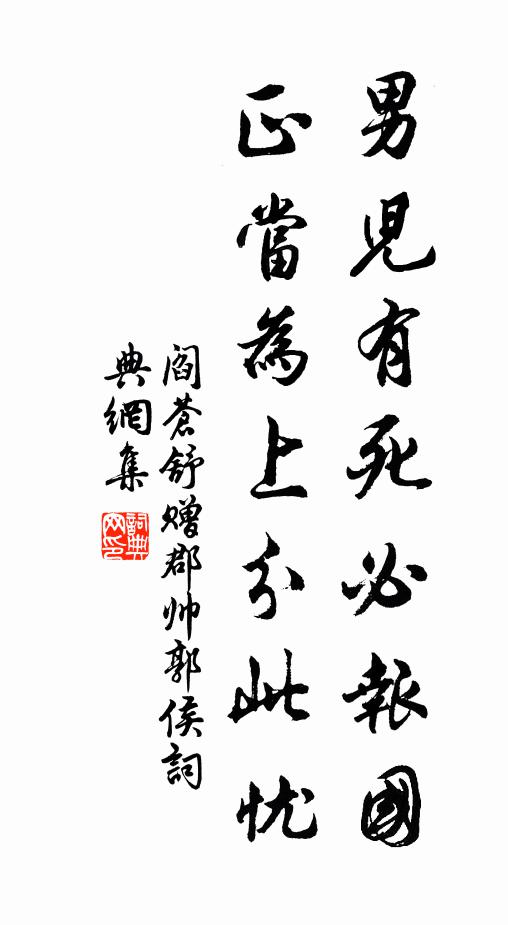 男兒有死必報國
正當為上分此忧
閻蒼舒贈郡帅郭侯詞
典網集
詞典網印